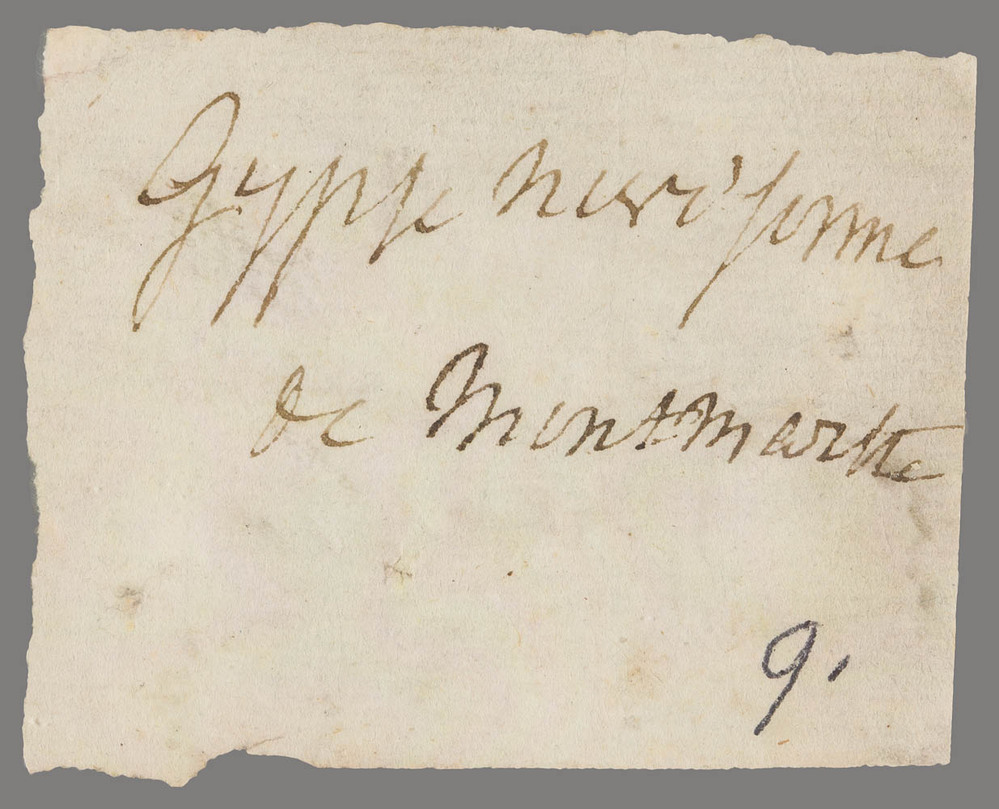 Gypse niviforme
de Montmartre
9.